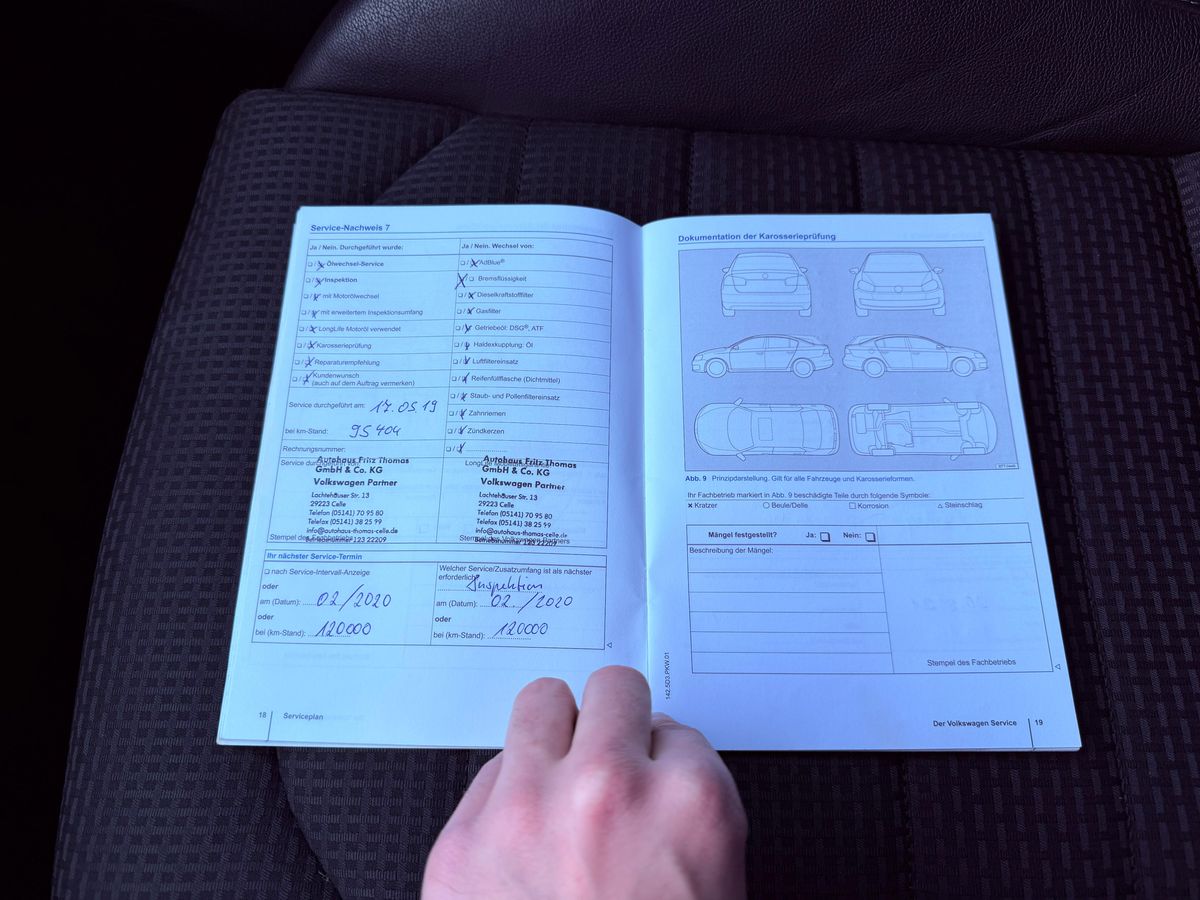 Service-Nachweis 7
Ja / Nein. Durchgeführt wurde:
❑ / ❑ Ölwechsel-Service
❑ / ❑ Inspektion
❑ / ❑ mit Motorölwechsel
❑ / ❑ mit erweitertem Inspektionsumfang
❑ / ❑ LongLife Motoröl verwendet
❑ / ❑ Karosserieprüfung
❑ / ❑ Reparaturempfehlung
❑ / ❑ Kundenwunsch
(auch auf dem Auftrag vermerken)
Service durchgeführt am: 17.05.19
bei km-Stand: 95 404
Rechnungsnummer:
Service durchgeführt
Autohaus Fritz Thomas
GmbH & Co. KG
Volkswagen Partner
Lachtehäuser Str. 13
29223 Celle
Telefon (05141) 70 95 80
Telefax (05141) 38 25 99
info@autohaus-thomas-celle.de
Betriebsnummer 123 22209
Stempel des Fachbetriebs
Ja / Nein. Wechsel von:
❑ / ❑ AdBlue®
❑ / ❑ Bremsflüssigkeit
❑ / ❑ Dieselkraftstofffilter
❑ / ❑ Gasfilter
❑ / ❑ Getriebeöl: DSG®, ATF
❑ / ❑ Haldexkupplung: Öl
❑ / ❑ Luftfiltereinsatz
❑ / ❑ Reifenfüllflasche (Dichtmittel)
❑ / ❑ Staub- und Pollenfiltereinsatz
❑ / ❑ Zahnriemen
❑ / ❑ Zündkerzen
❑ / ❑ ....................
Autohaus Fritz Thomas
GmbH & Co. KG
Volkswagen Partner
Lachtehäuser Str. 13
29223 Celle
Telefon (05141) 70 95 80
Telefax (05141) 38 25 99
info@autohaus-thomas-celle.de
Betriebsnummer 123 22209
Stempel des Volkswagen Partners
Ihr nächster Service-Termin
❑ nach Service-Intervall-Anzeige
oder
am (Datum): 02/2020
oder
bei (km-Stand): 120000
Welcher Service/Zusatzumfang ist als nächster
erforderlich: Inspektion
am (Datum): 02./2020
oder
bei (km-Stand): 120000
18 Serviceplan
Dokumentation der Karosserieprüfung
Abb. 9 Prinzipdarstellung. Gilt für alle Fahrzeuge und Karosserieformen.
Ihr Fachbetrieb markiert in Abb. 9 beschädigte Teile durch folgende Symbole:
× Kratzer ○ Beule/Delle □ Korrosion △ Steinschlag
Mängel festgestellt? Ja: ❑ Nein: ❑
Beschreibung der Mängel:
Stempel des Fachbetriebs
142.5D3.PKW.01
Der Volkswagen Service 19